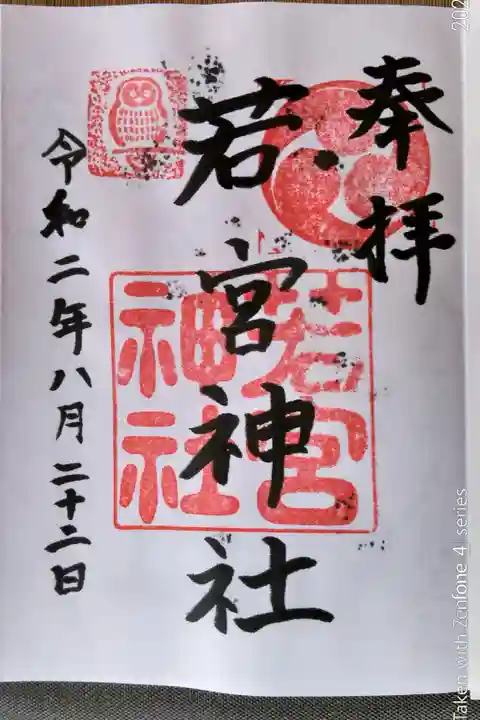 奉拝
若宮神社
若宮
神社
令和二年八月二十二日
Taken with Zenfone 4 series
202